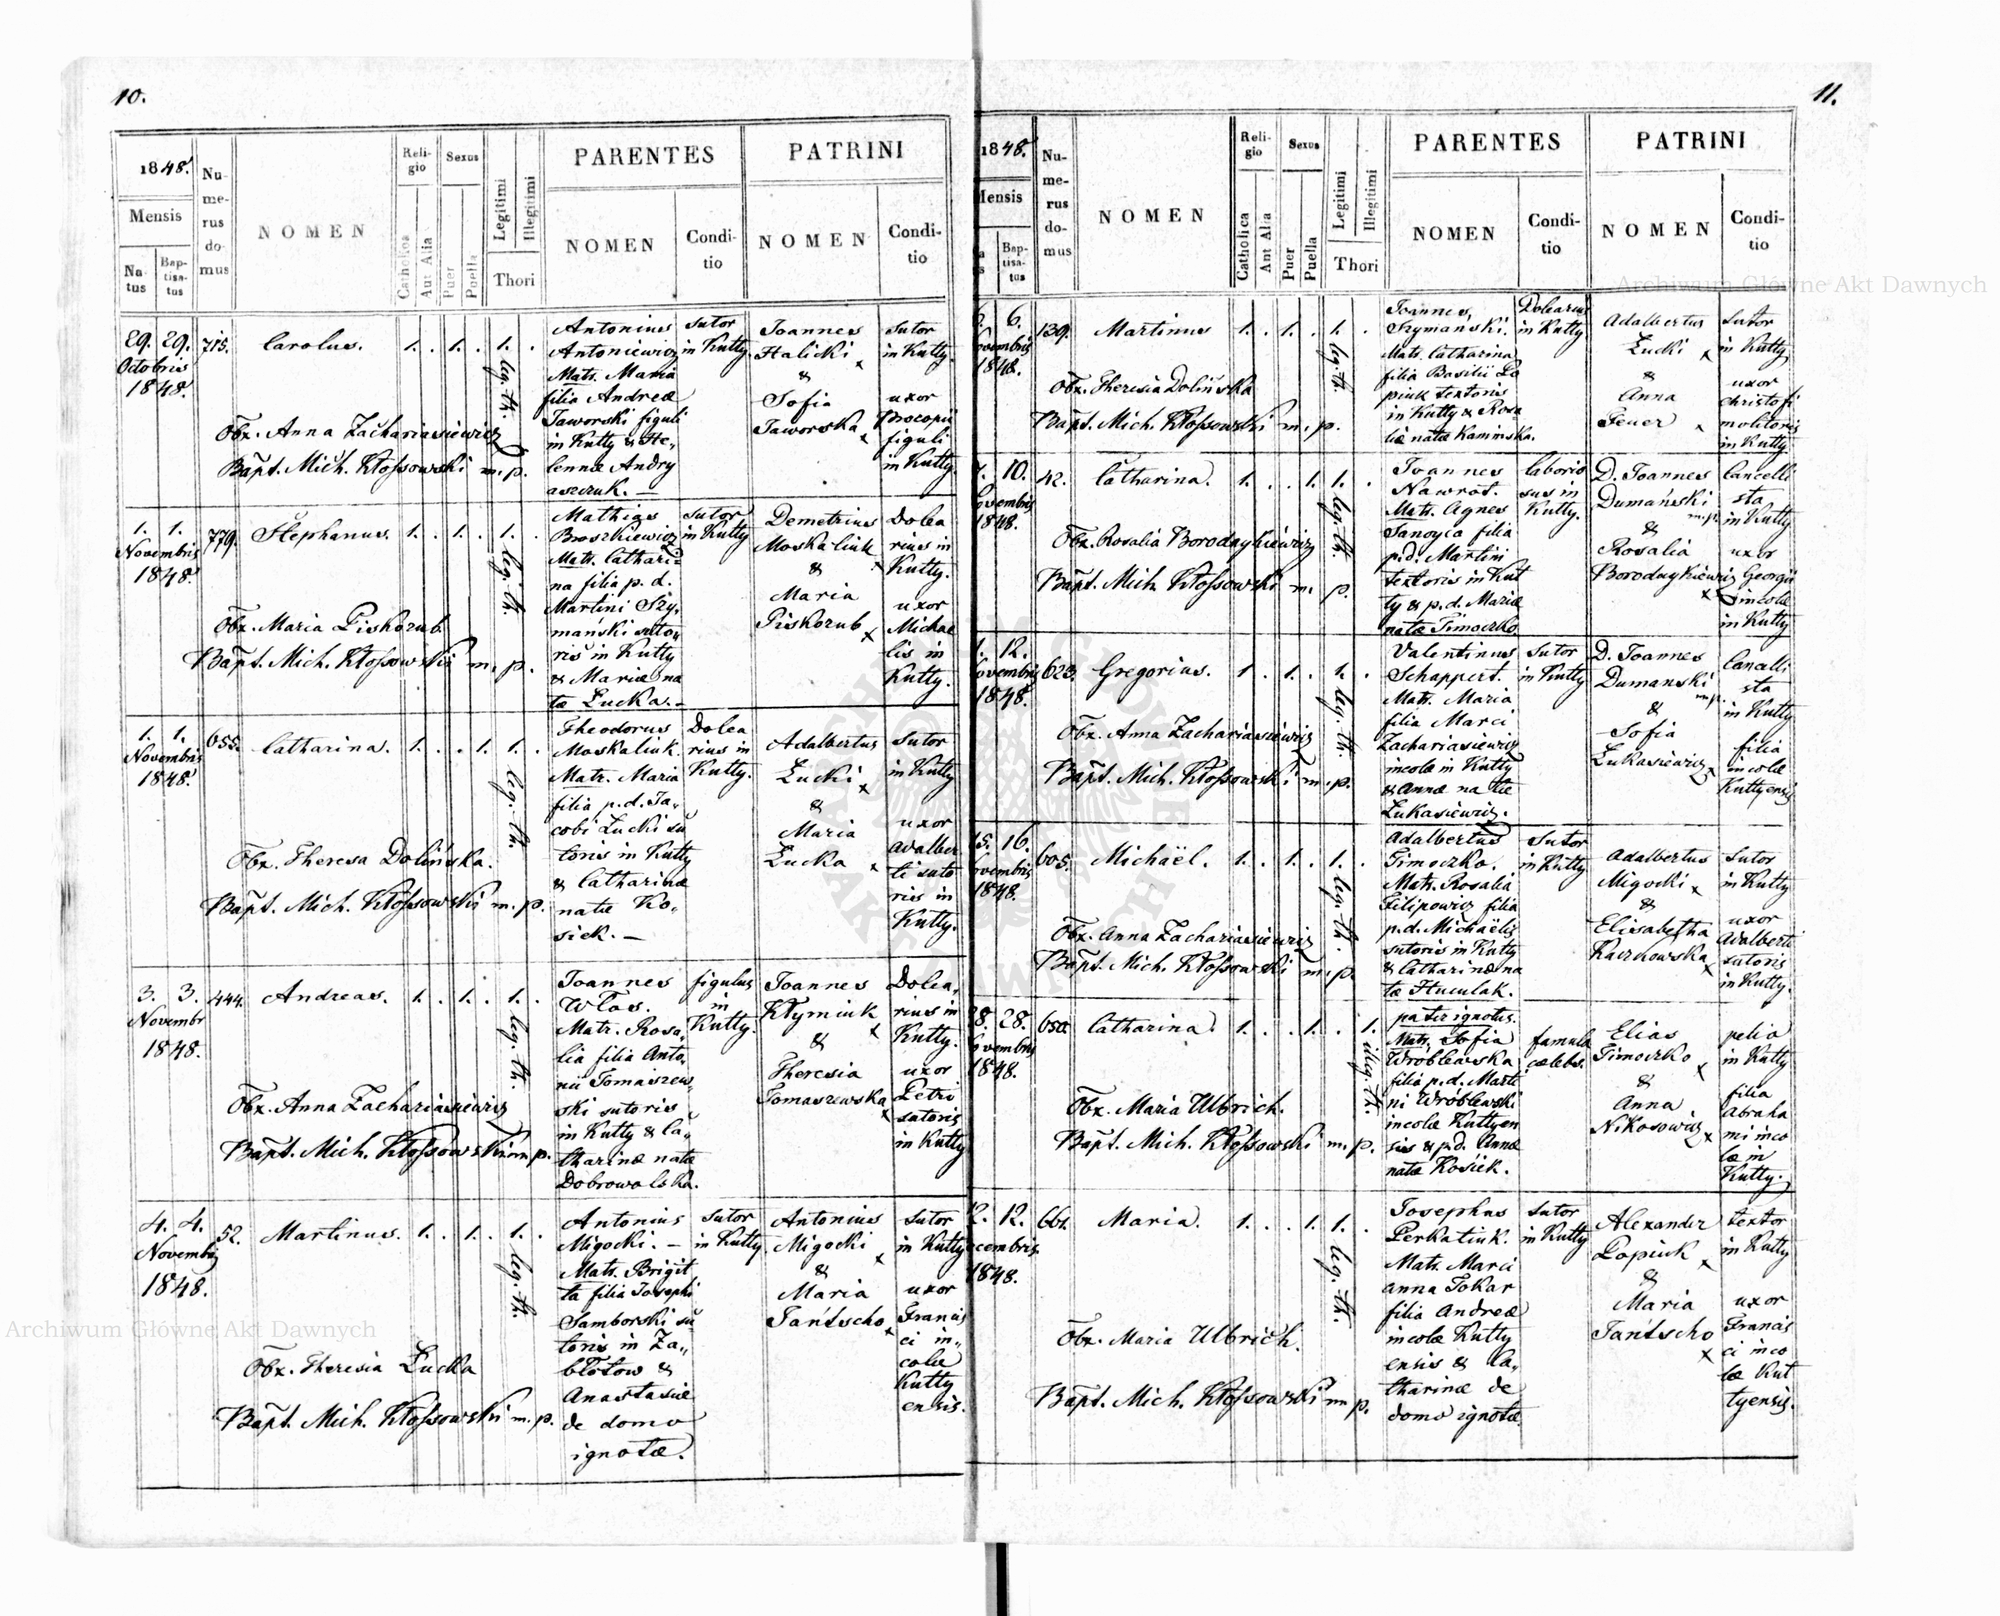 10.
1848.
Mensis
Na-
tus
Bap-
tisa-
tus
Nu-
me-
rus
do-
mus
NOMEN
Reli-
gio
Catholica
Aut Alia
Sexus
Puer
Puella
Legitimi
Illegitimi
Thori
PARENTES
NOMEN
Condi-
tio
PATRINI
NOMEN
Condi-
tio
29. 29.
Octobris
1848.
715.
Carolus.
1. . 1. . 1. .
leg. th.
Obx. Anna Zachariasiewicz
Bapt. Mich. Kłossowski m. p.
Antonius
Antoniewicz
Matr. Maria
filia Andreæ
Jaworski figuli
in Kutty & He„
lennæ Andry
aszczuk. —
Sutor
in Kutty.
Joannes
Halicki x
&
Sofia
Jaworska x
Sutor
in Kutty.
uxor
Procopii
figuli
in Kutty.
1. 1.
Novembris
1848.
779.
Stephanus.
1. . 1. . 1. .
leg. th.
Obx. Maria Piskozub
Bapt. Mich. Kłossowski m. p.
Mathias
Broszkiewicz
Matr. Cathari-
na filia p. d.
Martini Szy„
mański suto„
ris in Kutty
& Mariæ na
tæ Łucka. —
Sutor
in Kutty.
Demetrius
Moskaliuk x
&
Maria
Piskozub x
Dolea
rius in
Kutty.
uxor
Michae
lis in
Kutty.
1. 1.
Novembris
1848.
655.
Catharina.
1. . . 1. 1. .
leg. th.
Obx. Theresa Dolińska.
Bapt. Mich. Kłossowski m. p.
Theodorus
Moskaliuk.
Matr. Maria
filia p. d. Ja„
cobi Łucki su
toris in Kutty
& Catharinæ
natæ Ko„
sick. —
Dolea
rius in
Kutty.
Adalbertus
Łucki x
&
Maria
Łucka x
Sutor
in Kutty
uxor
Adalber
ti suto
ris in
Kutty.
3. 3.
Novembr
1848.
444.
Andreas.
1. . 1. . 1. .
leg. th.
Obx. Anna Zachariasiewicz
Bapt. Mich. Kłossowski m. p.
Joannes
Włas.
Matr. Rosa„
lia filia Anto„
nii Tomaszew„
ski sutoris
in Kutty & Ca„
tharinæ natæ
Dobrowolska.
figulus
in
Kutty.
Joannes
Kłymiuk x
&
Theresia
Tomaszewska x
Dolea„
rius in
Kutty.
uxor
Petri
sutoris
in Kutty
4. 4.
Novembris
1848.
52.
Martinus.
1. . 1. . 1. .
leg. th.
Obx. Theresia Łucka
Bapt. Mich. Kłossowski m. p.
Antonius
Migocki. —
Matr. Brigit
ta filia Josephi
Samborski su
toris in Za„
błotow &
Anastasiæ
de domo
ignotæ.
Sutor
in Kutty
Antonius
Migocki x
&
Maria
Jańtscho x
Sutor
in Kutty
uxor
Francis
ci in„
colæ
Kutty
ensis.
11.
1848.
Mensis
Bap-
tisa-
tus
Nu-
me-
rus
do-
mus
NOMEN
Reli-
gio
Catholica
Aut Alia
Sexus
Puer
Puella
Legitimi
Illegitimi
Thori
PARENTES
NOMEN
Condi-
tio
PATRINI
NOMEN
Condi-
tio
6.
ovembris
1848.
139.
Martinus
1. . 1. . 1. .
leg. th.
Obx. Theresia Dolińska
Bapt. Mich. Kłossowski m. p.
Joannes
Szymański.
Matr. Catharina
filia Basilii Ło
piuk textoris
in Kutty & Rosa
liæ natæ Kaminska.
Dolearius
in Kutty
Adalbertus
Łucki x
&
Anna
Feuer x
Sutor
in Kutty
uxor
Christofi
molitoris
in Kutty
7. 10.
ovembris
1848.
42.
Catharina.
1. . . 1. 1. .
leg. th.
Obx. Rosalia Borodaykiewicz
Bapt. Mich. Kłossowski m. p.
Joannes
Nawrot.
Matr. Agnes
Sanoyca filia
p. d. Martini
textoris in Kut
ty & p. d. Mariæ
natæ Timoczko
laborio
sus in
Kutty.
D. Joannes
Dumański
m.p.
&
Rosalia
Borodaykiewicz x
Cancelli
sta
in Kutty
uxor
Georgii
incolæ
in Kutty
1. 12.
ovembris
1848.
623.
Gregorius.
1. . 1. . 1. .
leg. th.
Obx. Anna Zachariasiewicz
Bapt. Mich. Kłossowski m. p.
Valentinus
Schappert.
Matr. Maria
filia Marci
Zachariasiewicz
incolæ in Kutty
& Annæ natæ
Łukasiewicz.
Sutor
in Kutty
D. Joannes
Dumanski
m.p.
&
Sofia
Łukasiewicz x
Cancelli
sta
in Kutty
filia
incolæ
Kuttyensis
15. 16.
ovembris
1848.
605.
Michaël.
1. . 1. . 1. .
leg. th.
Obx. Anna Zachariasiewicz
Bapt. Mich. Kłossowski m. p.
Adalbertus
Timoczko.
Matr. Rosalia
Filipowicz filia
p. d. Michaëlis
sutoris in Kutty
& Catharinæ na
tæ Huculak.
Sutor
in Kutty
Adalbertus
Migocki x
&
Elisabetha
Kaczkowska x
Sutor
in Kutty
uxor
Adalberti
sutoris
in Kutty.
28. 28.
ovembris
1848.
650.
Catharina.
1. . . 1. . 1.
illeg. th.
Obx. Maria Ulbrich.
Bapt. Mich. Kłossowski m. p.
pater ignotus.
Matr. Sofia
Wróblewska
filia p. d. Marti
ni Wróblewski
incolæ Kuttyen
sis & p. d. Annæ
natæ Kosiek.
famula
cælebs.
Elias
Timoczko x
&
Anna
Nikosowicz x
pelio
in Kutty
filia
Abraha
mi inco
læ in
Kutty.
12. 12.
ecembris
1848.
661.
Maria.
1. . . 1. 1. .
leg. th.
Obx. Maria Ulbrich.
Bapt. Mich. Kłossowski m. p.
Josephus
Perkatiuk.
Matr. Mari
anna Tokar
filia Andreæ
incolæ Kutty
ensis & Ca„
tharinæ de
domo ignotæ
Sutor
in Kutty
Alexander
Popiuk x
&
Maria
Jańtscho x
textor
in Kutty
uxor
Francis
ci inco
læ Kut
tyensis.
Archiwum Główne Akt Dawnych
Archiwum Główne Akt Dawnych